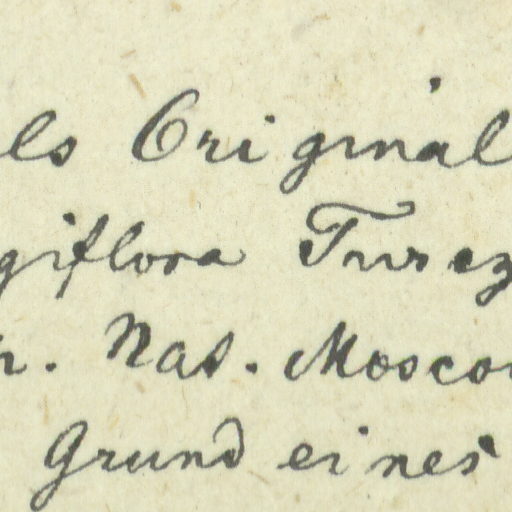 ls Original
giflora Turcz
r. Nat. Mosco
Grund eines